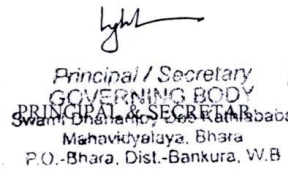 Principal / Secretary
GOVERNING BODY
PRINCIPAL & SECRETARY
Swami Dhananjoy Das Kathiababa
Mahavidyalaya, Bhara
P.O.-Bhara, Dist.-Bankura, W.B